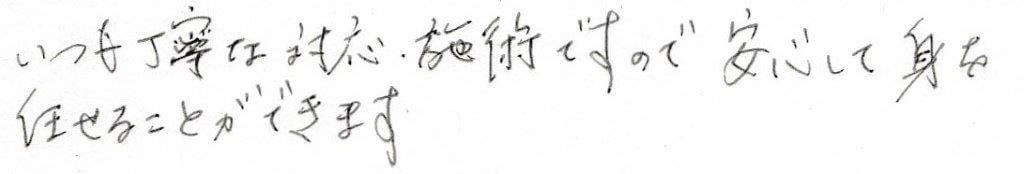 いつも丁寧な対応・施術ですので安心して身を
任せることができます